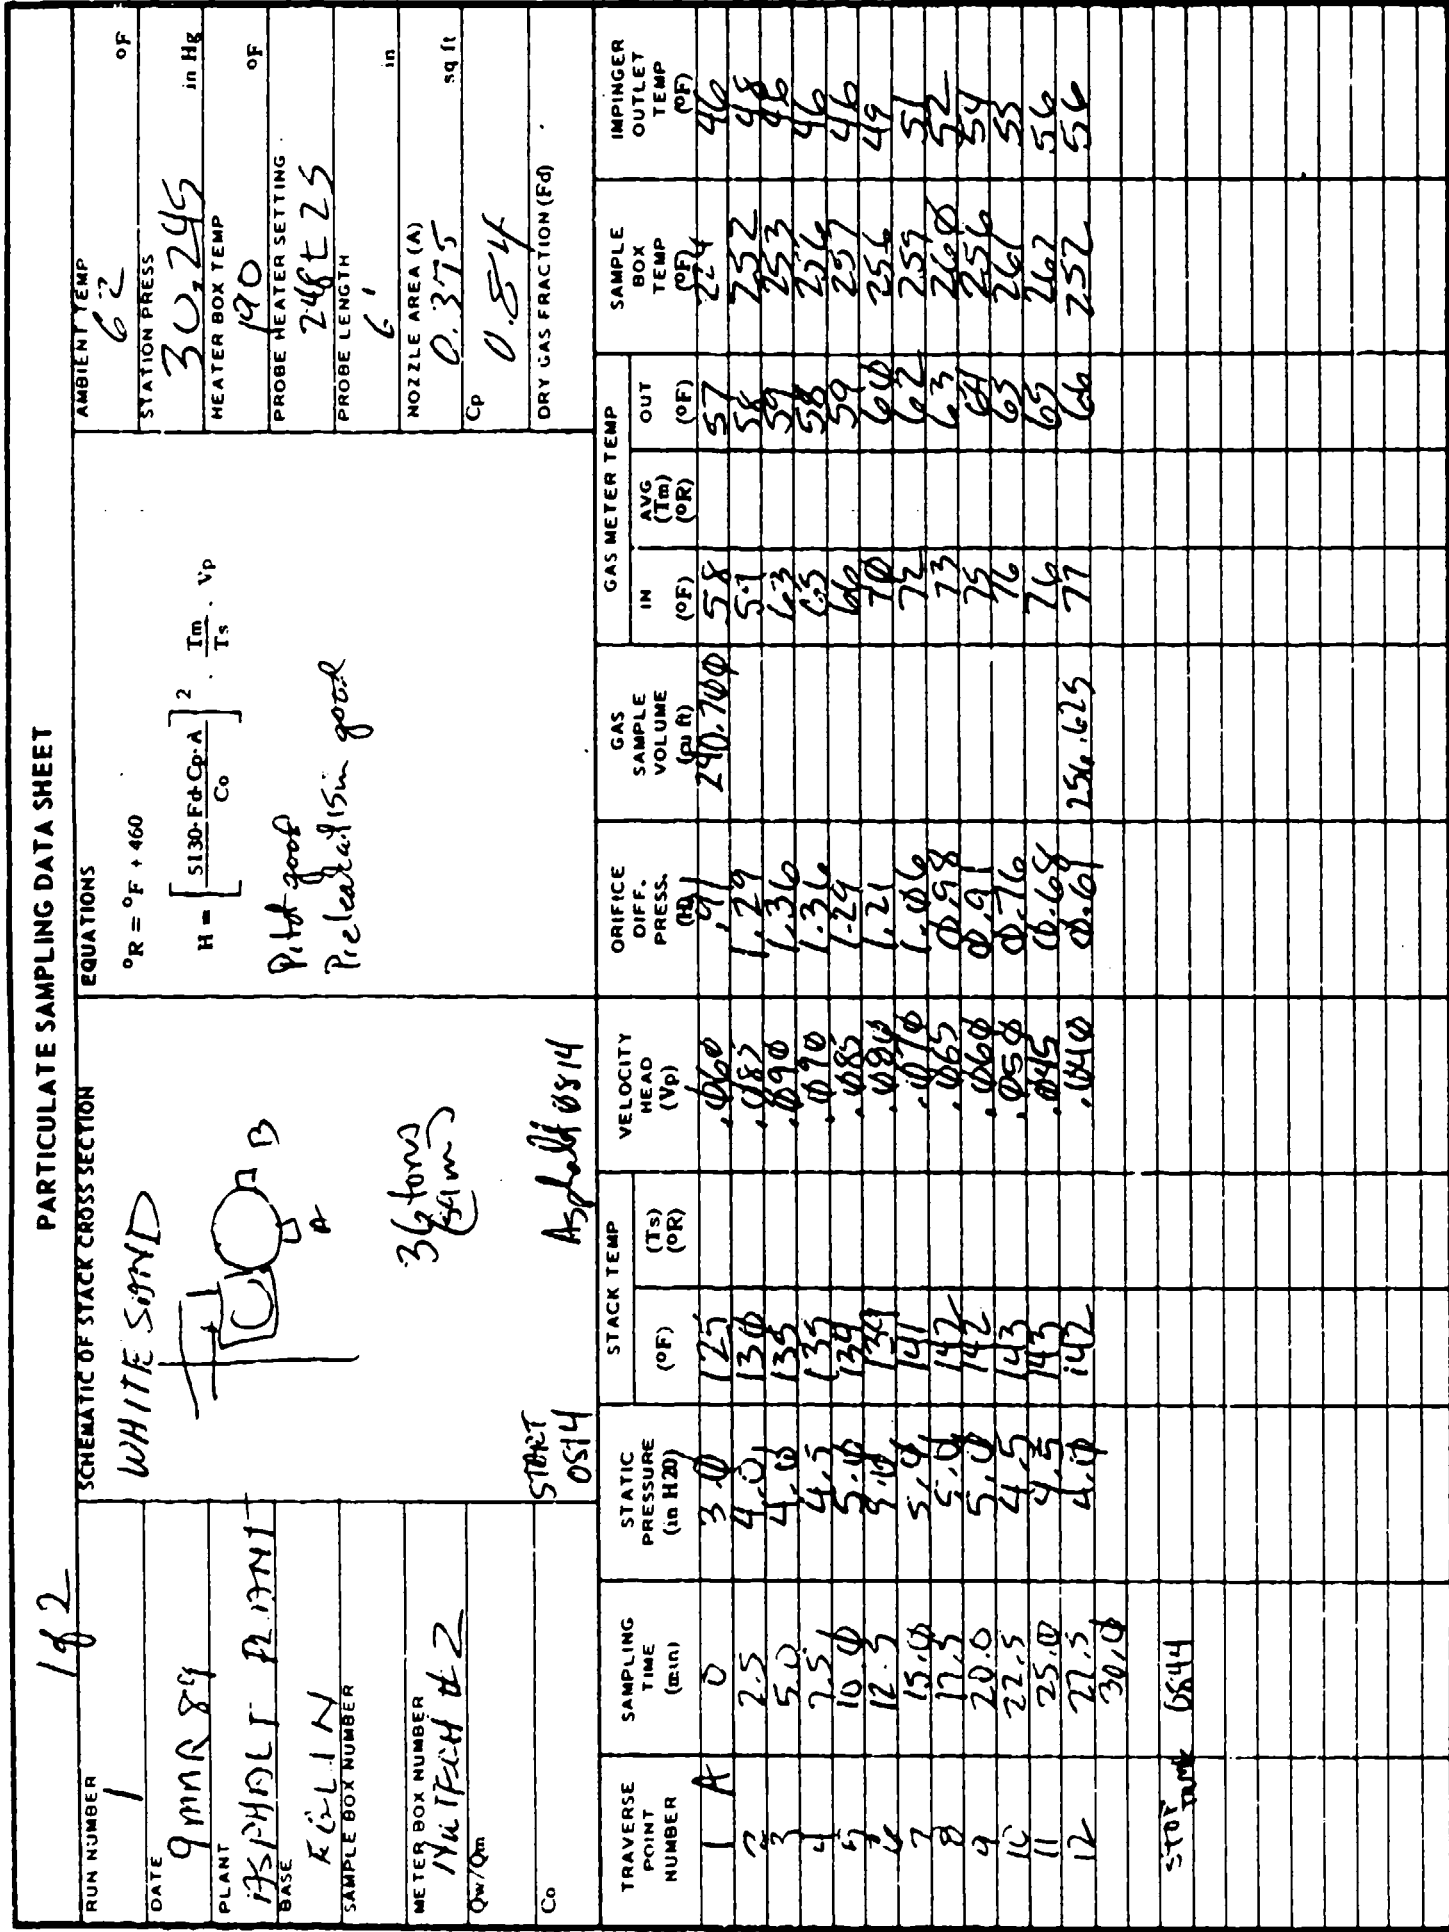 PARTICULATE SAMPLING DATA SHEET
1 of 2
RUN NUMBER
1
DATE
9 MAR 89
PLANT
ASPHALT PLANT
BASE
EGLIN
SAMPLE BOX NUMBER
METER BOX NUMBER
NUTECH #2
Qw/Qm
Co
SCHEMATIC OF STACK CROSS SECTION
WHITE SAND
A
B
36 tons
START
0814
Asphalt 0814
EQUATIONS
°R = °F + 460
H = [5130·Fd·Cp·A / Co]² · Tm/Ts · Vp
Pitot good
good
AMBIENT TEMP
62 °F
STATION PRESS
30.245 in Hg
HEATER BOX TEMP
190 °F
PROBE HEATER SETTING
PROBE LENGTH
6' in
NOZZLE AREA (A)
0.375 sq ft
Cp
0.84
DRY GAS FRACTION (Fd)
TRAVERSE POINT NUMBER
SAMPLING TIME (min)
STATIC PRESSURE (in H20)
STACK TEMP
(°F)
(Ts) (°R)
VELOCITY HEAD (Vp)
ORIFICE DIFF. PRESS. (H)
GAS SAMPLE VOLUME (cu ft)
GAS METER TEMP
IN (°F)
AVG (Tm) (°R)
OUT (°F)
SAMPLE BOX TEMP (°F)
IMPINGER OUTLET TEMP (°F)
1 A 0 3.0 125 .060 .91 240.700 58 57 224 46
2 2.5 4.0 130 .085 1.29 59 58 232 48
3 5.0 4.0 135 .090 1.36 63 59 253 46
4 7.5 4.5 135 .090 1.36 65 58 256 46
5 10.0 5.0 139 .085 1.29 66 59 257 46
6 12.5 5.0 139 .080 1.21 70 60 256 49
7 15.0 5.0 141 .070 1.06 72 62 259 51
8 17.5 5.0 142 .065 0.98 73 63 260 52
9 20.0 5.0 142 .060 0.91 75 64 256 54
10 22.5 4.5 143 .050 0.76 76 65 261 55
11 25.0 4.5 143 .045 0.68 76 65 262 56
12 27.5 4.0 142 .040 0.61 256.625 77 66 252 56
30.0
STOP TIME 0844